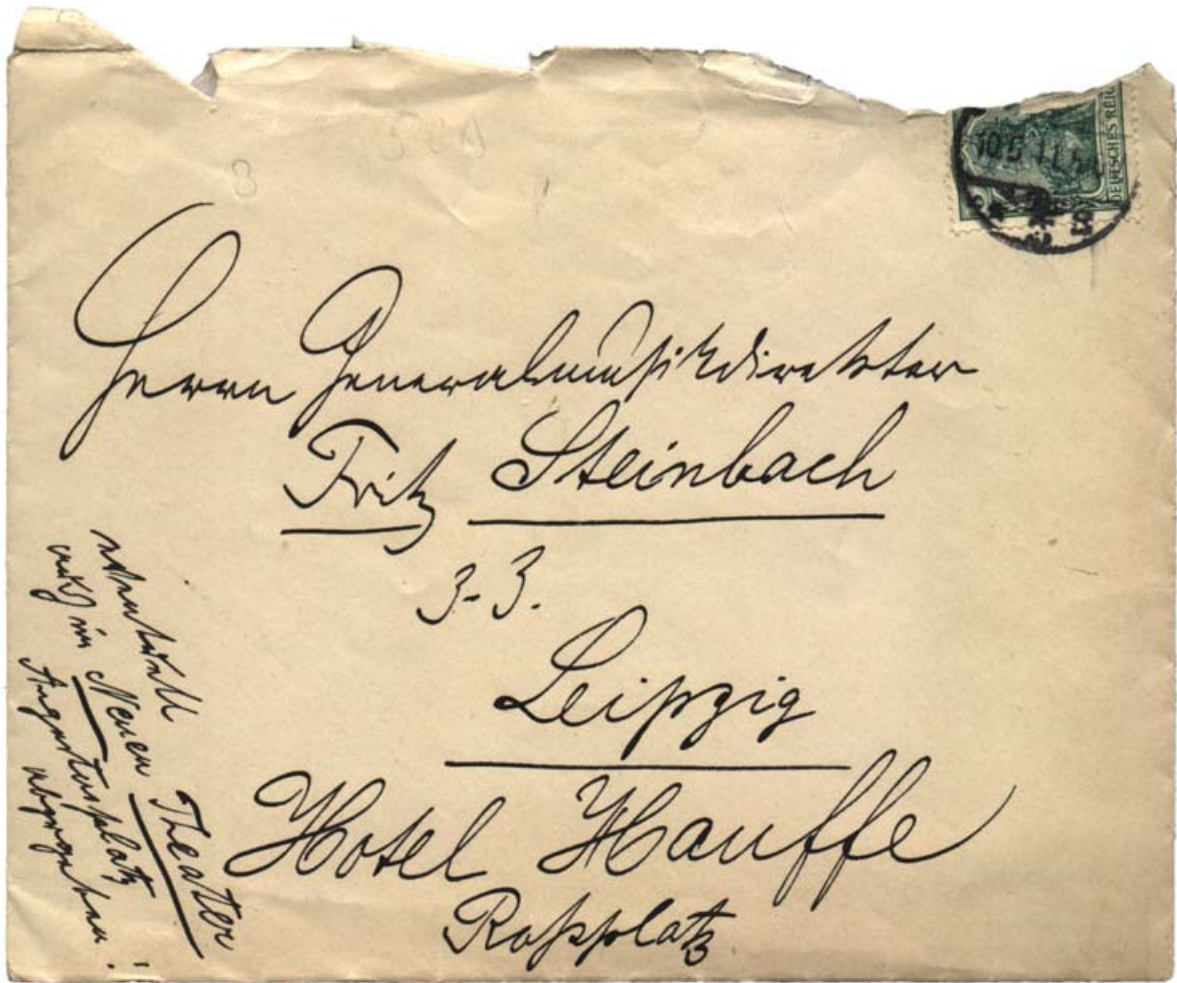 DEUTSCHES REICH
Herrn Generalmusikdirektor
Fritz Steinbach
z. Z.
Leipzig
Hotel Hauffe
Roßplatz
eventuell
auch im Neuen Theater
Augustusplatz
abzugeben!